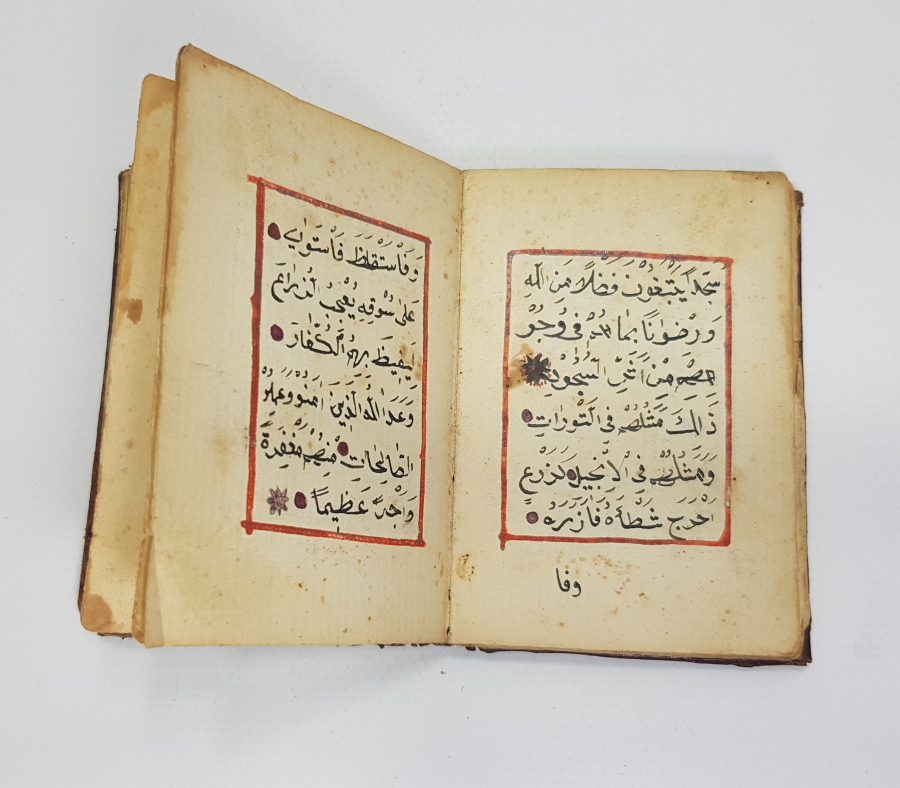 سُجَّدًا يَبْتَغُونَ فَضْلًا مِنَ اللّٰهِ
وَرِضْوَانًا بِمَا هُمْ فِى وُجُوْ
هِهِمْ مِنْ اَثَرِ السُّجُودِ
ذَالِكَ مَثَلُهُمْ فِى التَّوْرَاتِ
وَمَثَلُهُمْ فِى الْاِنْجِيلِ كَزَرْعٍ
اَخْرَجَ شَطْـَٔهُ فَاٰزَرَهُ
وفا
وَفَاسْتَغْلَظَ فَاسْتَوٰاى
عَلٰى سُوْقِهِ يُعْجِبُ الزُّرَاعَ
لِيَغِيظَ بِهِمُ الْكُفَّارَ
وَعَدَ اللّٰهُ الَّذِينَ اٰمَنُوْ وَعَمِلُو
الصَّالِحَاتِ مِنْهُمْ مَغْفِرَةً
وَاَجْرًا عَظِيماً